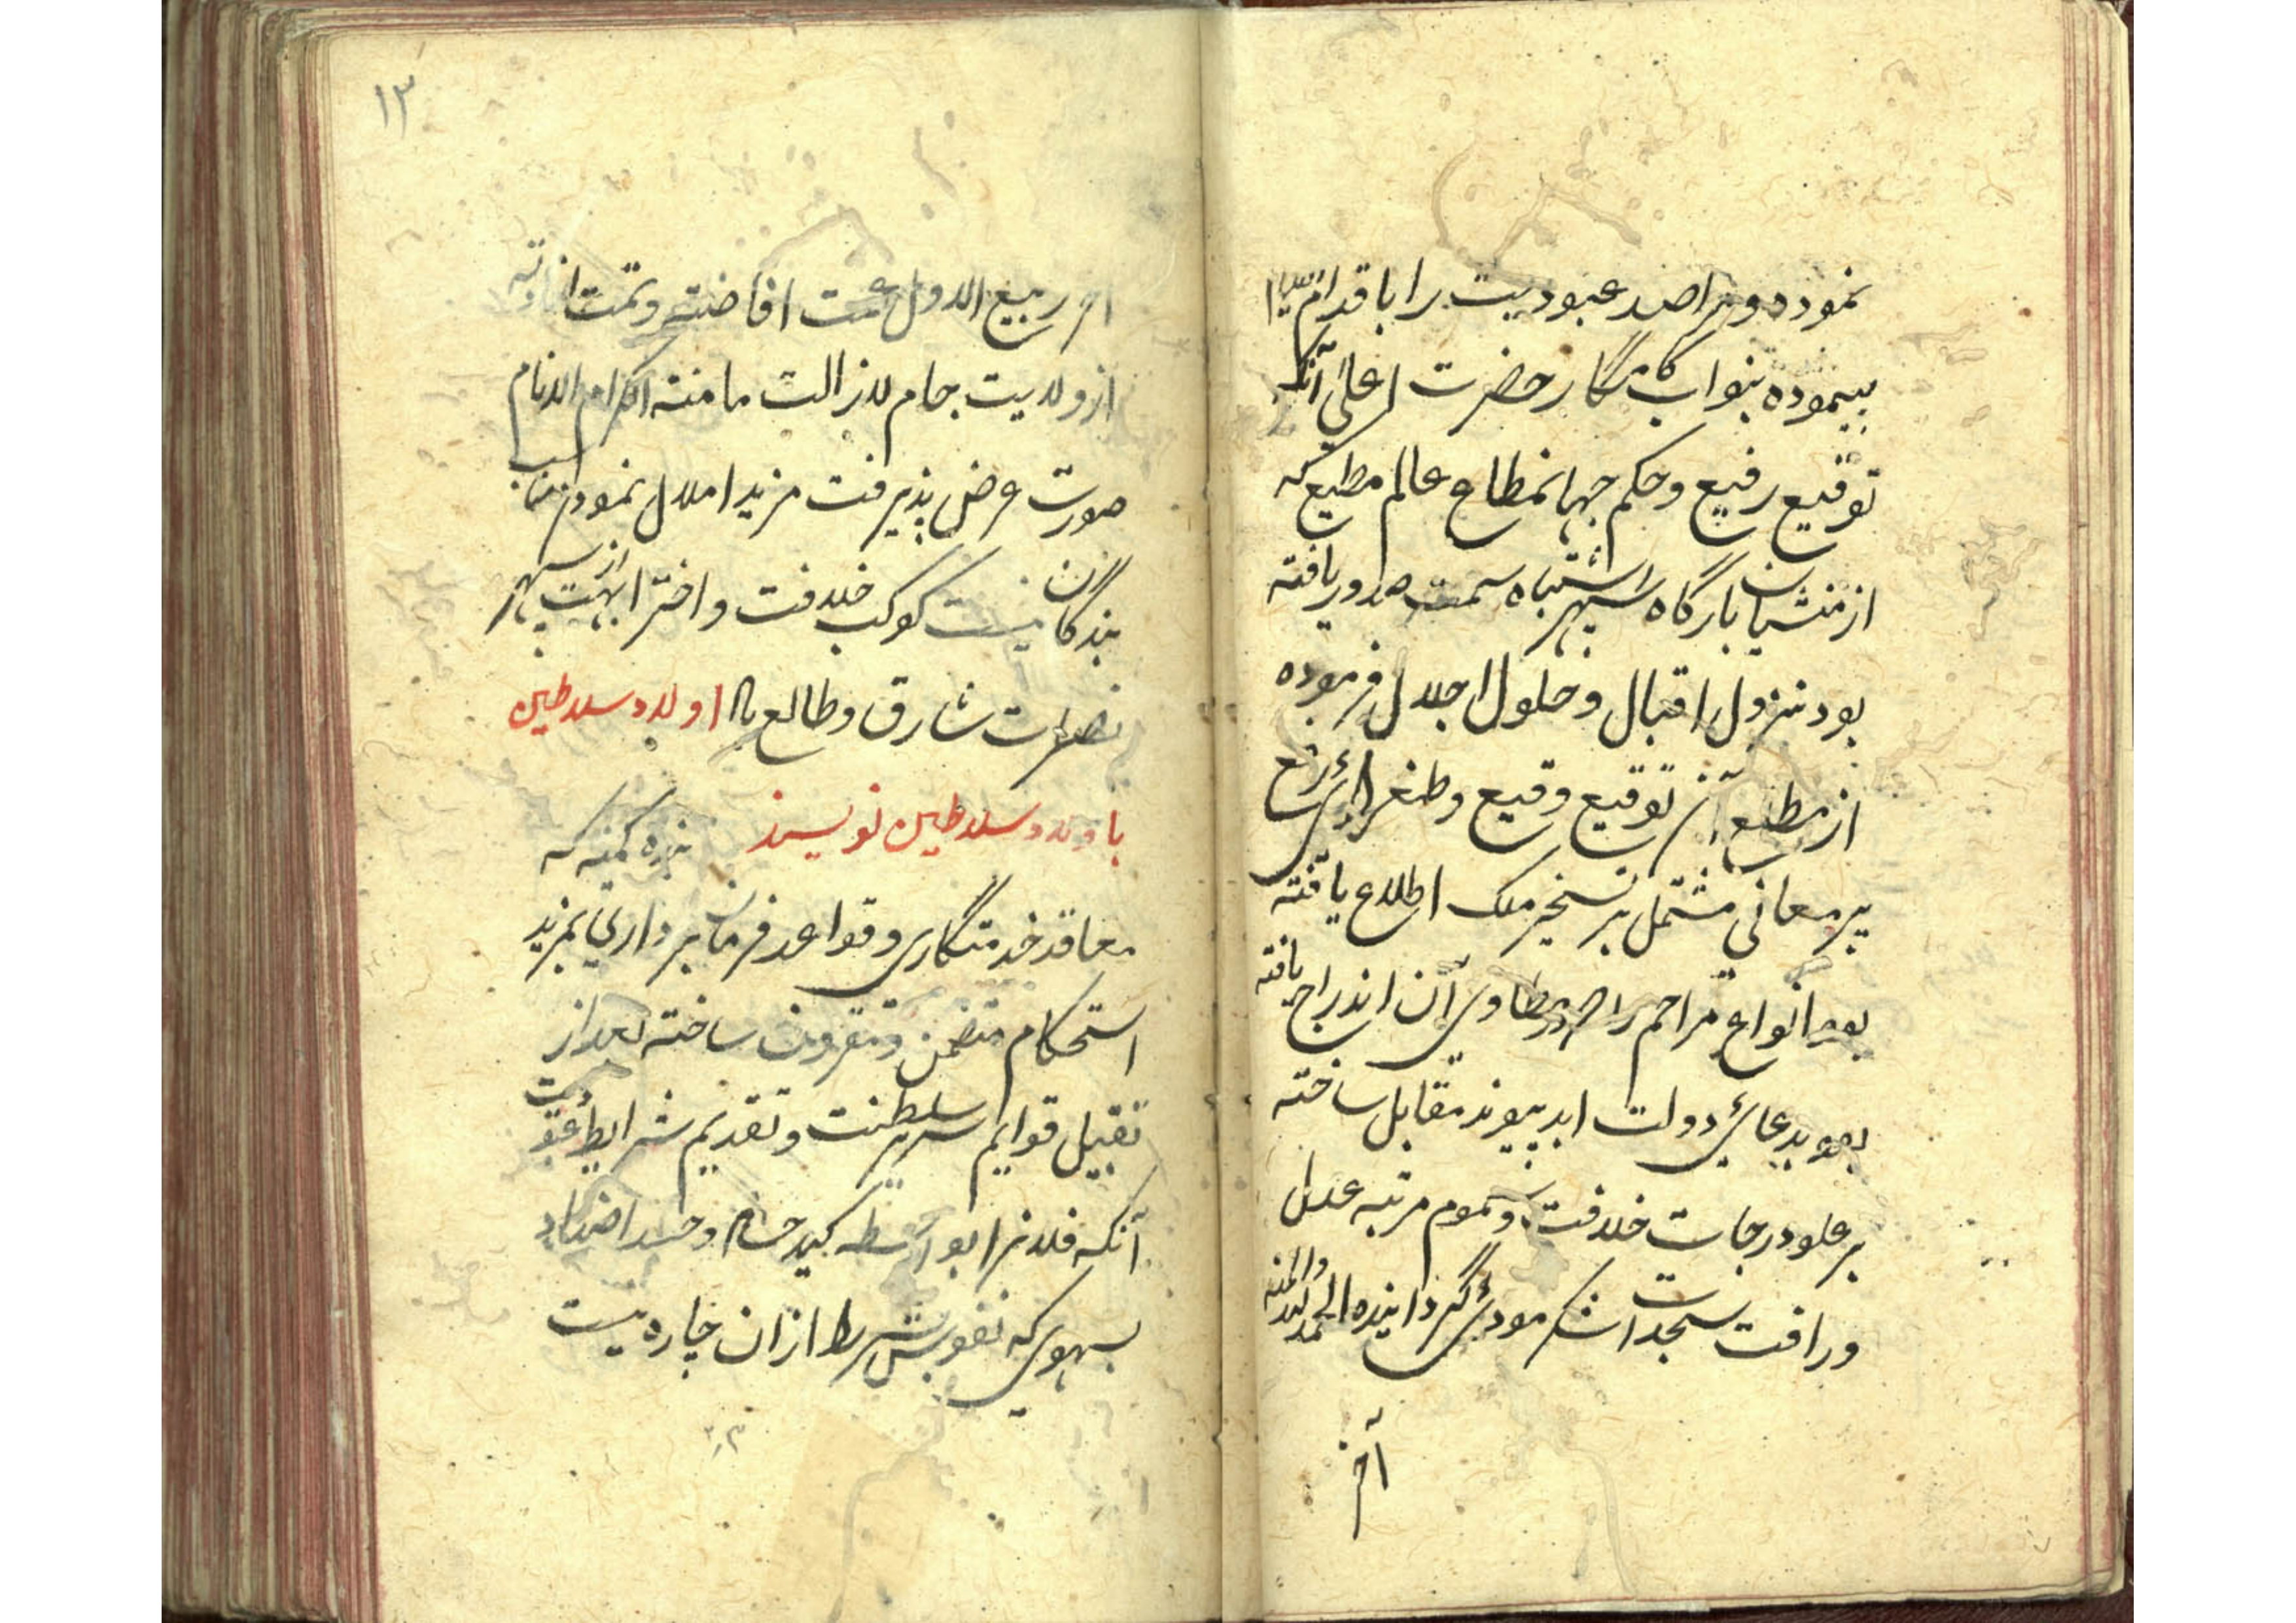 نموده و مراصد عبودیت را باقدام
پیموده بنواب کامگار حضرت اعلی آنکه
توقیع رفیع و حکم جهانمطاع عالم مطیع که
از منشیان بارگاه سپهر اشتباه سمت صدور یافته
بود نزول اقبال و حلول اجلال فرموده
از مطلع آن توقیع وقیع و طغرای
بر معانی مشتمل بر تسخیر ملک اطلاع یافته
بود انواع مراحم را که در مطاوی آن اندراج یافته
بود بدعای دولت ابد پیوند مقابل ساخته
بر علو درجات خلافت و سموم مرتبه عدل
و رافت سجدات شکر مودی گردانیده الحمد لله والمنه
آخر
۱۳
آخر ربیع الاول عمت افاضته و تمت افادته
از ولایت جام لازالت مامنه الکرام الانام
صورت عرض پذیرفت مزید املال نمودن مناسب
بندگان نیست کوکب خلافت و اختر ابهت از سپهر
نصرت شارق و طالع باد اولاد سلاطین
باولاد سلاطین نویسند بنده کمینه که
معاقد خدمتگاری و قواعد فرمان برداری بمزید
استحکام متضمن و مقرون ساخته بعد از
تقبیل قوایم سریر سلطنت و تقدیم شرایط عبودیت
آنکه فلانرا بواسطه کید حساد و حسد اضداد
بسهوی که نفوس بشر را از ان چاره نیست